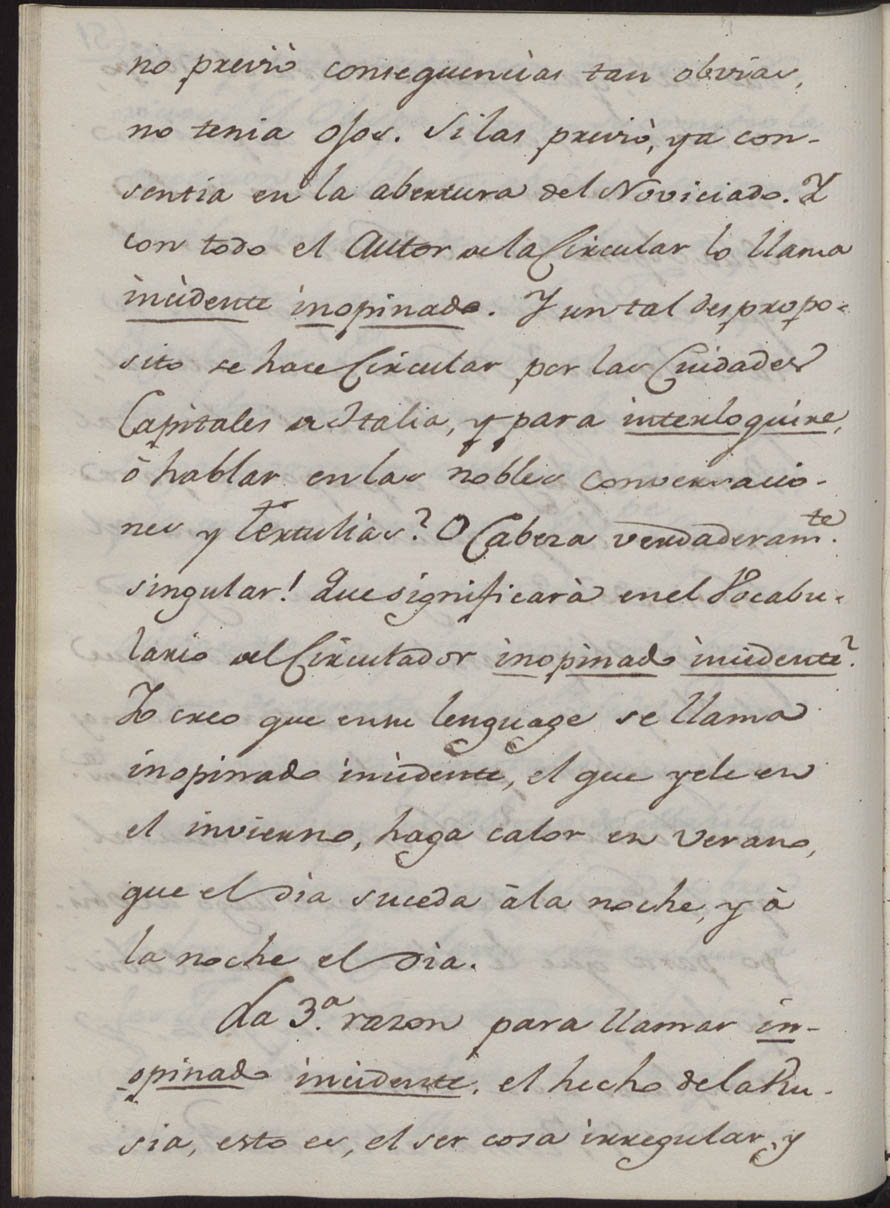 no previò consequencias tan obvias,
no tenia ojos. Si las previò, ya con-
sentia en la abertura del Noviciado. Y
con todo el Autor de la Circular lo llama
incidente inopinado. Y un tal despropo-
sito se hace Circular por las Cuidades
Capitales de Italia, y para interloquire,
ò hablar en las nobles conversacio-
nes y Tertulias? O Cabeza verdaderamte.
singular! Que significarà en el Vocabu-
lario del Circulador inopinado incidente?
Yo creo que en su lenguage se llama
inopinado incidente, el que yele en
el invierno, haga calor en verano,
que el dia suceda à la noche, y à
la noche el dia.
La 3.a razon para llamar in-
opinado incidente, el hecho de la Ru-
sia, esto es, el ser cosa irregular, y